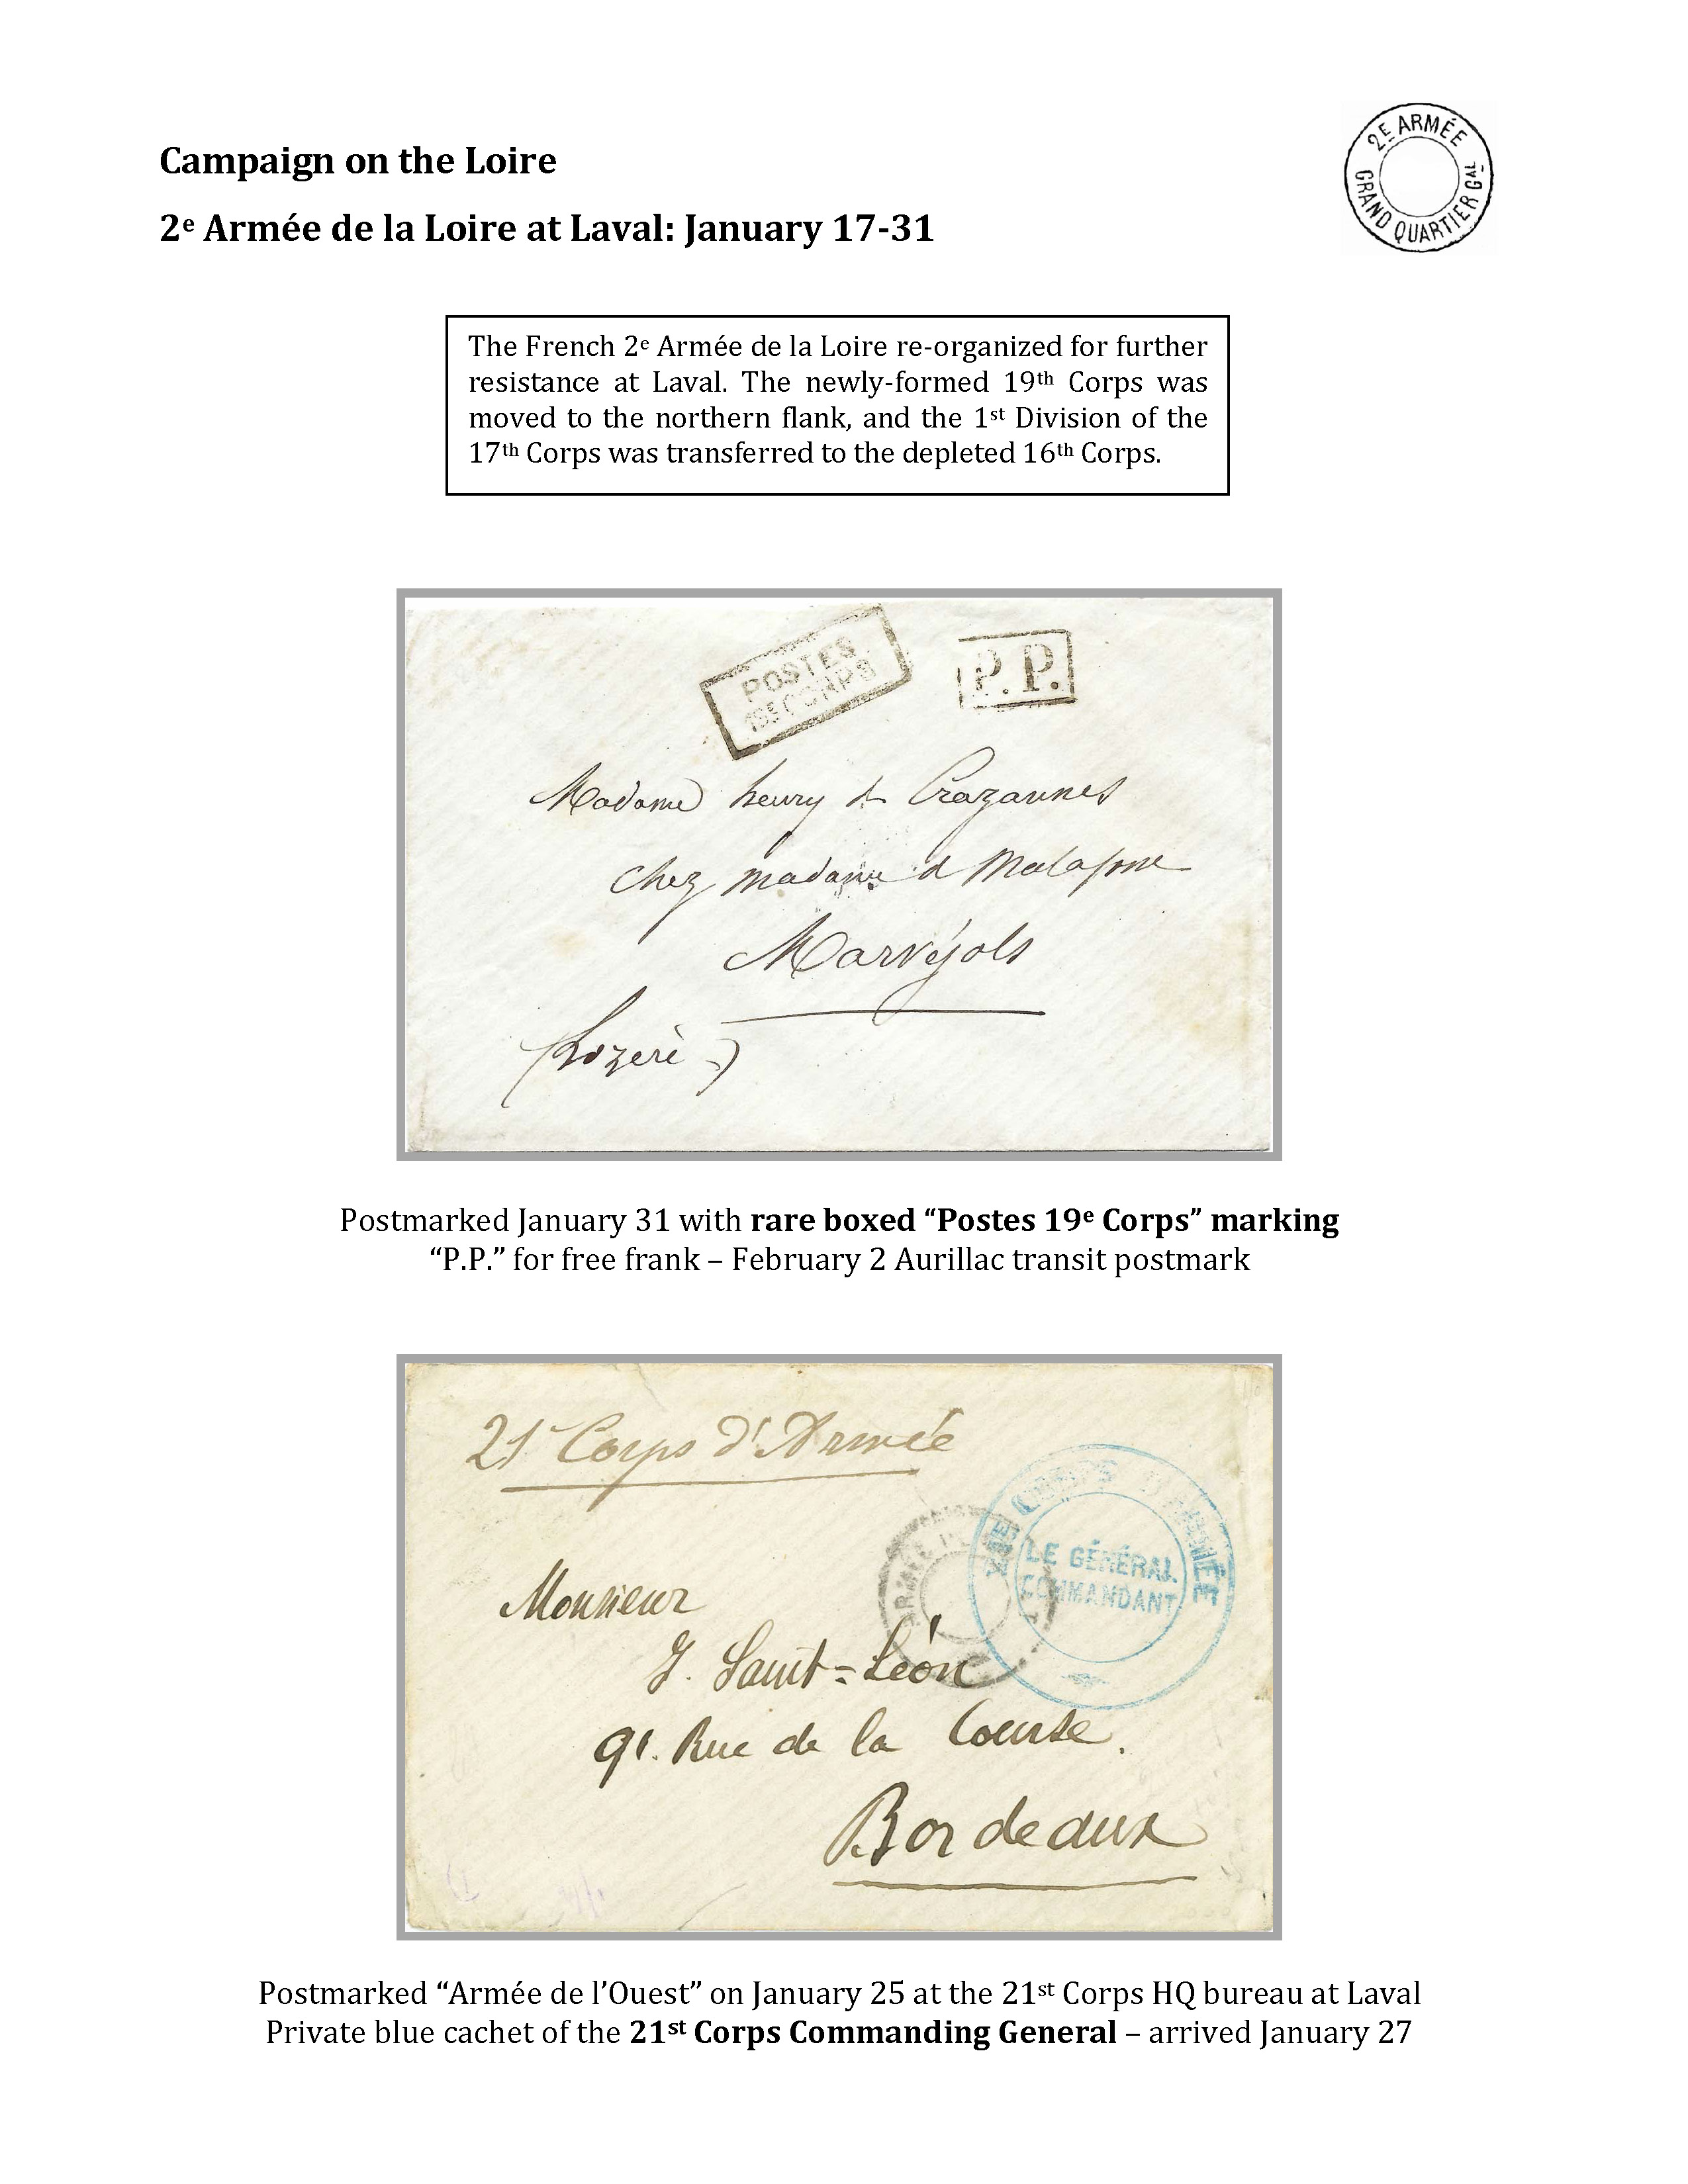 Campaign on the Loire
2e Armée de la Loire at Laval: January 17-31
2E ARMÉE
GRAND QUARTIER GAL
The French 2e Armée de la Loire re-organized for further
resistance at Laval. The newly-formed 19th Corps was
moved to the northern flank, and the 1st Division of the
17th Corps was transferred to the depleted 16th Corps.
POSTES
19E CORPS
P.P.
Madame henry de Crazannes
chez madame d
Marvéjols
(Lozère)
Postmarked January 31 with rare boxed “Postes 19e Corps” marking
“P.P.” for free frank – February 2 Aurillac transit postmark
21e Corps d'Armée
21E CORPS D'ARMÉE
LE GÉNÉRAL
COMMANDANT
ARMÉE DE
Monsieur
J. Saint-Léon
91. Rue de la Course.
Bordeaux
Postmarked “Armée de l’Ouest” on January 25 at the 21st Corps HQ bureau at Laval
Private blue cachet of the 21st Corps Commanding General – arrived January 27